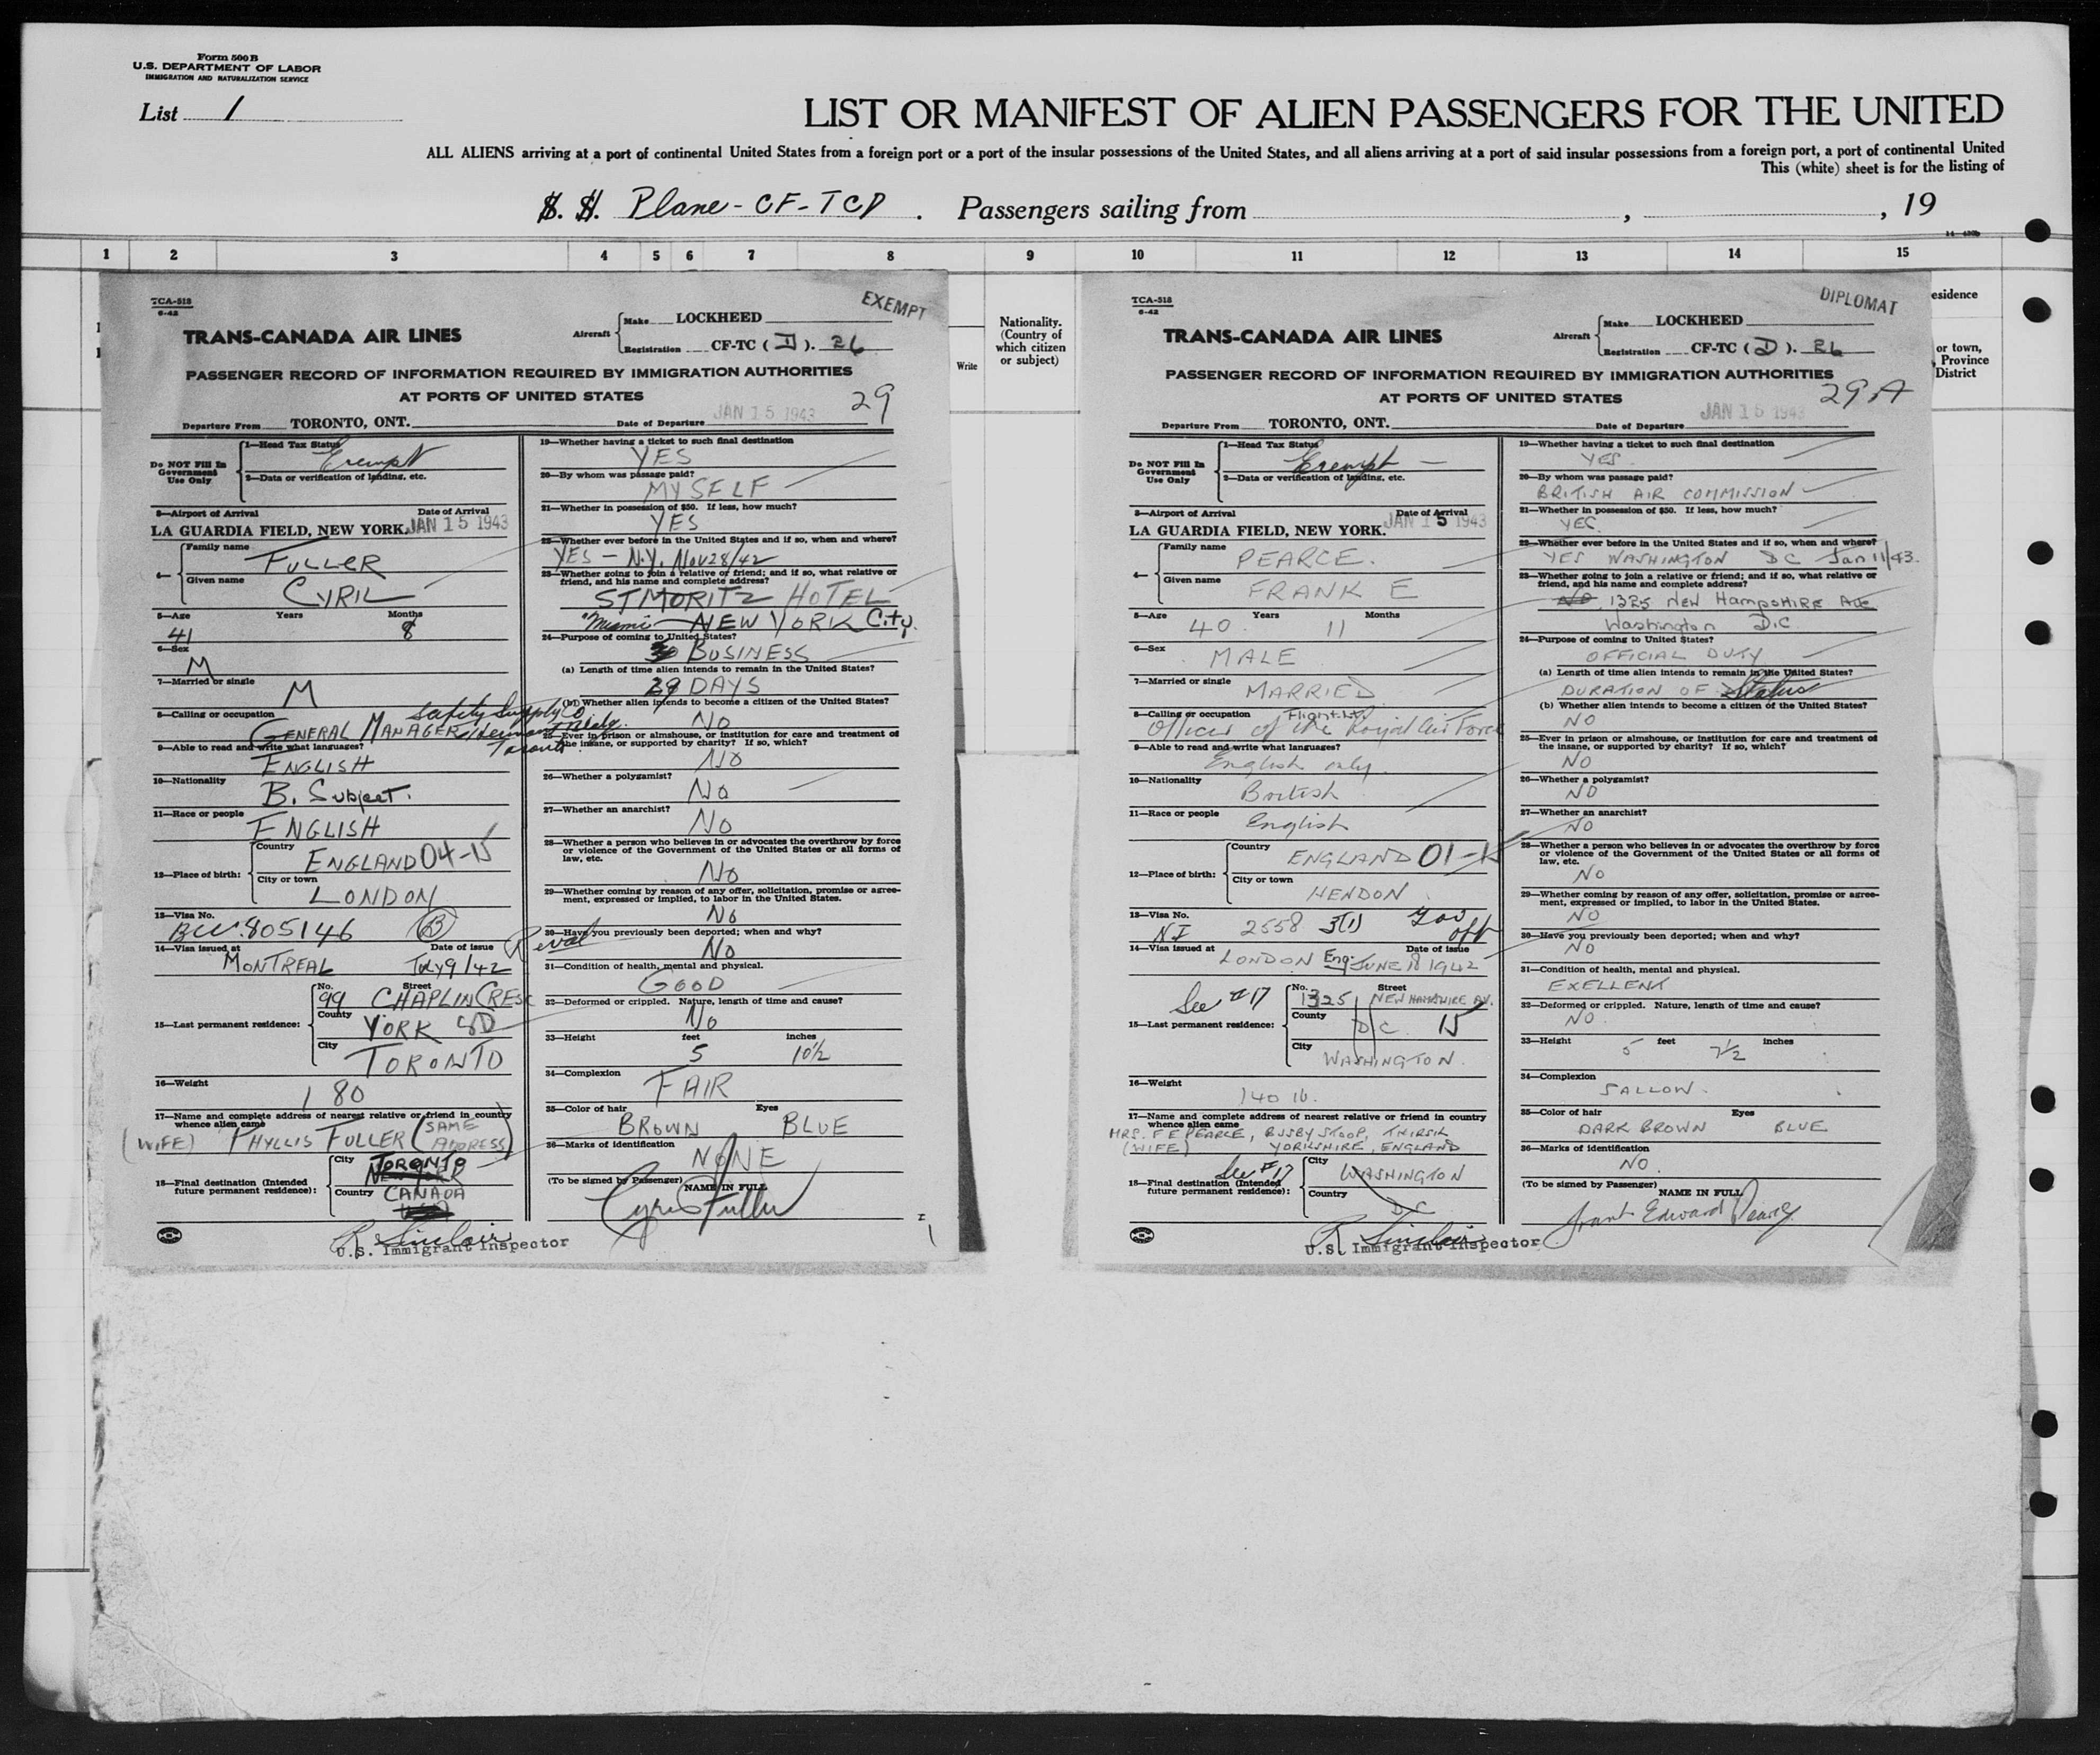 Form 500 B
U.S. DEPARTMENT OF LABOR
IMMIGRATION AND NATURALIZATION SERVICE
List 1
LIST OR MANIFEST OF ALIEN PASSENGERS FOR THE UNITED
ALL ALIENS arriving at a port of continental United States from a foreign port or a port of the insular possessions of the United States, and all aliens arriving at a port of said insular possessions from a foreign port, a port of continental United
This (white) sheet is for the listing of
S. S. Plane - CF-TCD . Passengers sailing from , , 19
1 2 3 4 5 6 7 8 9 10 11 12 13 14 15
TCA-518
6-42
EXEMPT
TRANS-CANADA AIR LINES
Aircraft Make LOCKHEED
Registration CF-TC ( D ). 26
PASSENGER RECORD OF INFORMATION REQUIRED BY IMMIGRATION AUTHORITIES
AT PORTS OF UNITED STATES
29
Departure From TORONTO, ONT. Date of Departure JAN 15 1943
Do NOT Fill In
Government
Use Only
1—Head Tax Status Exempt
2—Data or verification of landing, etc.
3—Airport of Arrival Date of Arrival
LA GUARDIA FIELD, NEW YORK. JAN 15 1943
4— Family name FULLER
Given name CYRIL
5—Age Years Months
41 8
6—Sex
M
7—Married or single
M
8—Calling or occupation Safety Supply Co
GENERAL MANAGER Bldg.
Toronto
9—Able to read and write what languages?
ENGLISH
10—Nationality
B. Subject.
11—Race or people
ENGLISH
12—Place of birth: Country
ENGLAND 04-15
City or town
LONDON
13—Visa No.
805146 B
14—Visa issued at Date of issue
MONTREAL July 9/42
15—Last permanent residence:
No. Street
99 CHAPLIN CRESC
County
YORK
City
TORONTO
16—Weight
180
17—Name and complete address of nearest relative or friend in country
whence alien came
(WIFE) PHYLLIS FULLER (SAME ADDRESS)
18—Final destination (Intended
future permanent residence):
City TORONTO
NEW YORK
Country CANADA
R Sinclair
U.S. Immigrant Inspector
19—Whether having a ticket to such final destination
YES
20—By whom was passage paid?
MYSELF
21—Whether in possession of $50. If less, how much?
YES
22—Whether ever before in the United States and if so, when and where?
YES - N.Y. Nov 28/42
23—Whether going to join a relative or friend; and if so, what relative or
friend, and his name and complete address?
ST MORITZ HOTEL
NEW YORK City.
24—Purpose of coming to United States?
BUSINESS
(a) Length of time alien intends to remain in the United States?
29 DAYS
(b) Whether alien intends to become a citizen of the United States?
NO
25—Ever in prison or almshouse, or institution for care and treatment of
the insane, or supported by charity? If so, which?
NO
26—Whether a polygamist?
NO
27—Whether an anarchist?
NO
28—Whether a person who believes in or advocates the overthrow by force
or violence of the Government of the United States or all forms of
law, etc.
NO
29—Whether coming by reason of any offer, solicitation, promise or agree-
ment, expressed or implied, to labor in the United States.
NO
30—Have you previously been deported; when and why?
NO
31—Condition of health, mental and physical.
GOOD
32—Deformed or crippled. Nature, length of time and cause?
NO
33—Height feet inches
5 10½
34—Complexion
FAIR
35—Color of hair Eyes
BROWN BLUE
36—Marks of identification
NONE
(To be signed by Passenger) NAME IN FULL
Cyril Fuller
Write
Nationality.
(Country of
which citizen
or subject)
TCA-518
6-42
DIPLOMAT
TRANS-CANADA AIR LINES
Aircraft Make LOCKHEED
Registration CF-TC ( D ). 26
PASSENGER RECORD OF INFORMATION REQUIRED BY IMMIGRATION AUTHORITIES
AT PORTS OF UNITED STATES
29A
Departure From TORONTO, ONT. Date of Departure JAN 15 1943
Do NOT Fill In
Government
Use Only
1—Head Tax Status Exempt
2—Data or verification of landing, etc.
3—Airport of Arrival Date of Arrival
LA GUARDIA FIELD, NEW YORK. JAN 15 1943
4— Family name PEARCE.
Given name FRANK E
5—Age Years Months
40 11
6—Sex
MALE
7—Married or single
MARRIED
8—Calling or occupation Flight Lt.
Officer of the Royal Air Force
9—Able to read and write what languages?
English only.
10—Nationality
British
11—Race or people
English
12—Place of birth: Country
ENGLAND 01-15
City or town
HENDON
13—Visa No.
NI 2558 3(1) Gov off
14—Visa issued at Date of issue
LONDON Eng. JUNE 18 1942
See #17
15—Last permanent residence:
No. Street
1325 NEW HAMPSHIRE AV.
County
DC 15
City
WASHINGTON.
16—Weight
140 lb.
17—Name and complete address of nearest relative or friend in country
whence alien came
MRS. F E PEARCE, BUSBY STOOP, THIRSK
(WIFE) YORKSHIRE, ENGLAND
See #17
18—Final destination (Intended
future permanent residence):
City
WASHINGTON
Country
DC
R Sinclair
U.S. Immigrant Inspector
19—Whether having a ticket to such final destination
YES.
20—By whom was passage paid?
BRITISH AIR COMMISSION
21—Whether in possession of $50. If less, how much?
YES.
22—Whether ever before in the United States and if so, when and where?
YES WASHINGTON DC Jan 11/43.
23—Whether going to join a relative or friend; and if so, what relative or
friend, and his name and complete address?
NO. 1325 NEW HAMPSHIRE Ave
Washington D.C.
24—Purpose of coming to United States?
OFFICIAL DUTY
(a) Length of time alien intends to remain in the United States?
DURATION OF Status
(b) Whether alien intends to become a citizen of the United States?
NO
25—Ever in prison or almshouse, or institution for care and treatment of
the insane, or supported by charity? If so, which?
NO
26—Whether a polygamist?
NO
27—Whether an anarchist?
NO
28—Whether a person who believes in or advocates the overthrow by force
or violence of the Government of the United States or all forms of
law, etc.
NO
29—Whether coming by reason of any offer, solicitation, promise or agree-
ment, expressed or implied, to labor in the United States.
NO
30—Have you previously been deported; when and why?
NO
31—Condition of health, mental and physical.
EXELLENT
32—Deformed or crippled. Nature, length of time and cause?
NO.
33—Height feet inches
5 7½
34—Complexion
SALLOW.
35—Color of hair Eyes
DARK BROWN BLUE
36—Marks of identification
NO.
(To be signed by Passenger) NAME IN FULL
Frank Edward Pearce
esidence
or town,
Province
District